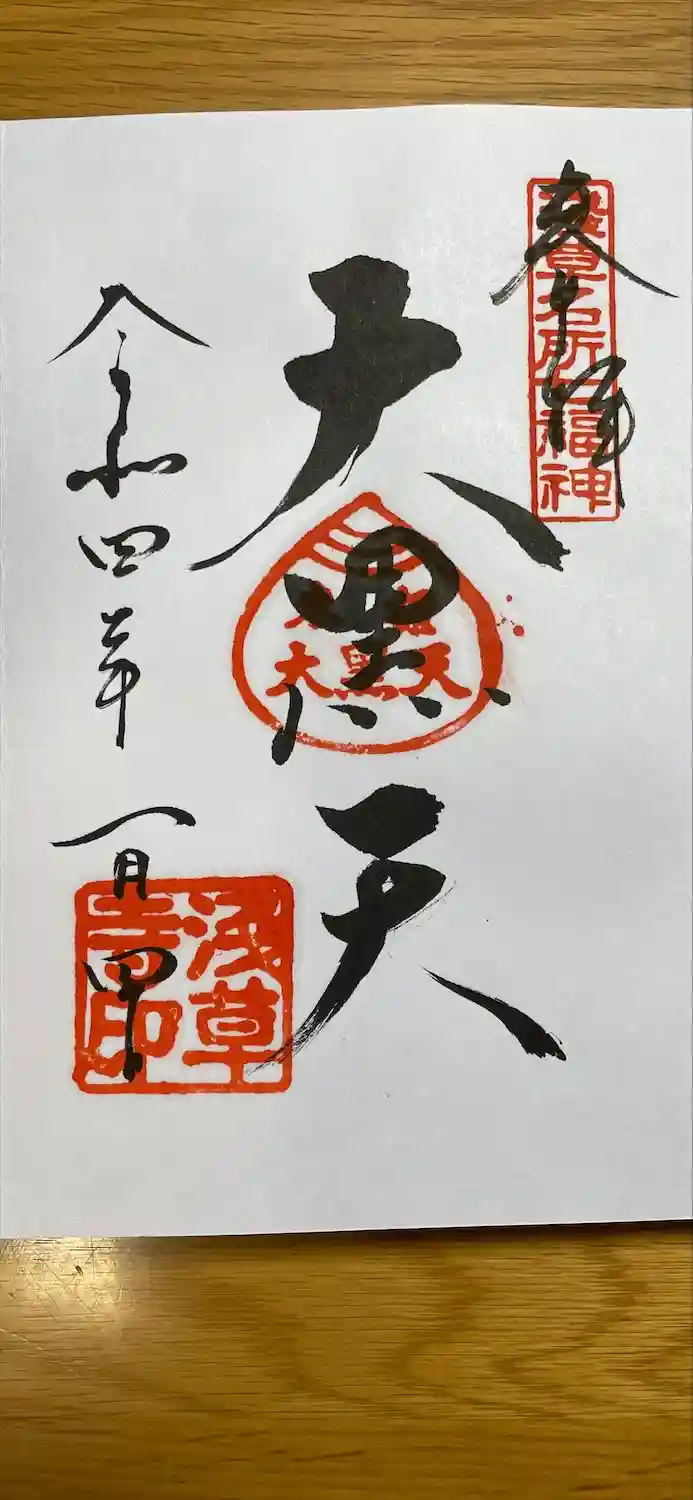 奉拝
浅草名所七福神
大黒天
大黒天
令和四年
浅草
寺印